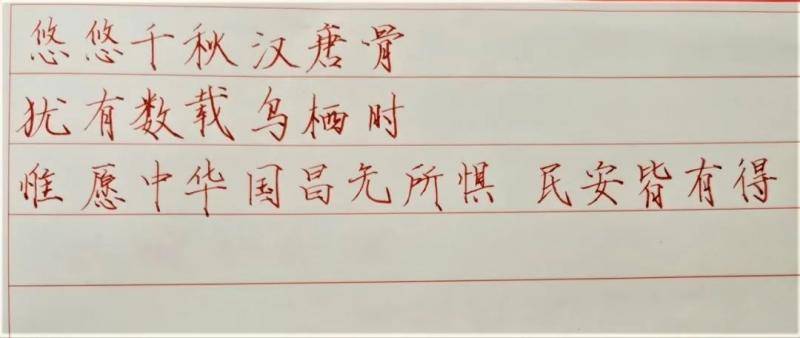 悠悠千秋汉唐骨
犹有数载鸟栖时
惟愿中华国昌无所惧 民安皆有得